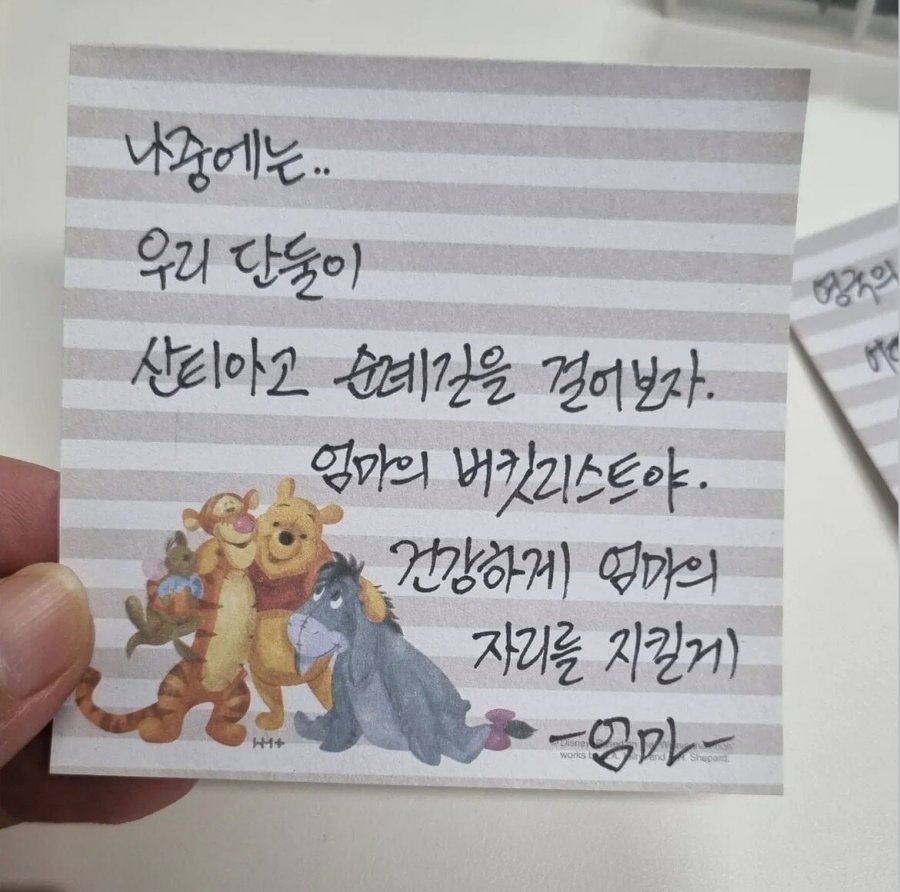 나중에는..
우리 단둘이
산티아고 순례길을 걸어보자.
엄마의 버킷리스트야.
건강하게 엄마의
자리를 지킬게
-엄마-
Disney
works and Shepard.
영국의